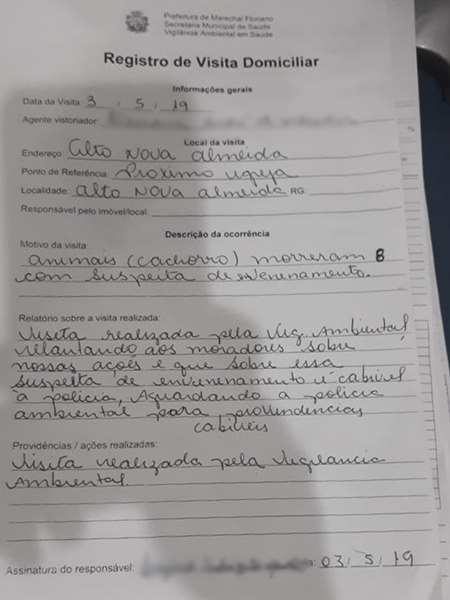 Prefeitura de Marechal Floriano
Secretaria Municipal de Saúde
Vigilância Ambiental em Saúde
Registro de Visita Domiciliar
Informações gerais
Data da Visita: 3 / 5 / 19
Agente vistoriador:
Local da visita
Endereço: Alto Nova Almeida
Ponto de Referência: Próximo igreja
Localidade: Alto Nova Almeida RG:
Responsável pelo imóvel/local:
Descrição da ocorrência
Motivo da visita:
animais (cachorro) morreram 8
com suspeita de envenenamento.
Relatório sobre a visita realizada:
Visita realizada pela Vig. Ambiental,
relantando aos moradores sobre
nossas ações é que sobre essa
suspeita de envenenamento é cabivel
à policia, Aguardando a policia
ambiental para providências
cabiveis
Providências / ações realizadas:
Visita realizada pela Vigilancia
Ambiental.
Assinatura do responsável: 03/ 5 / 19